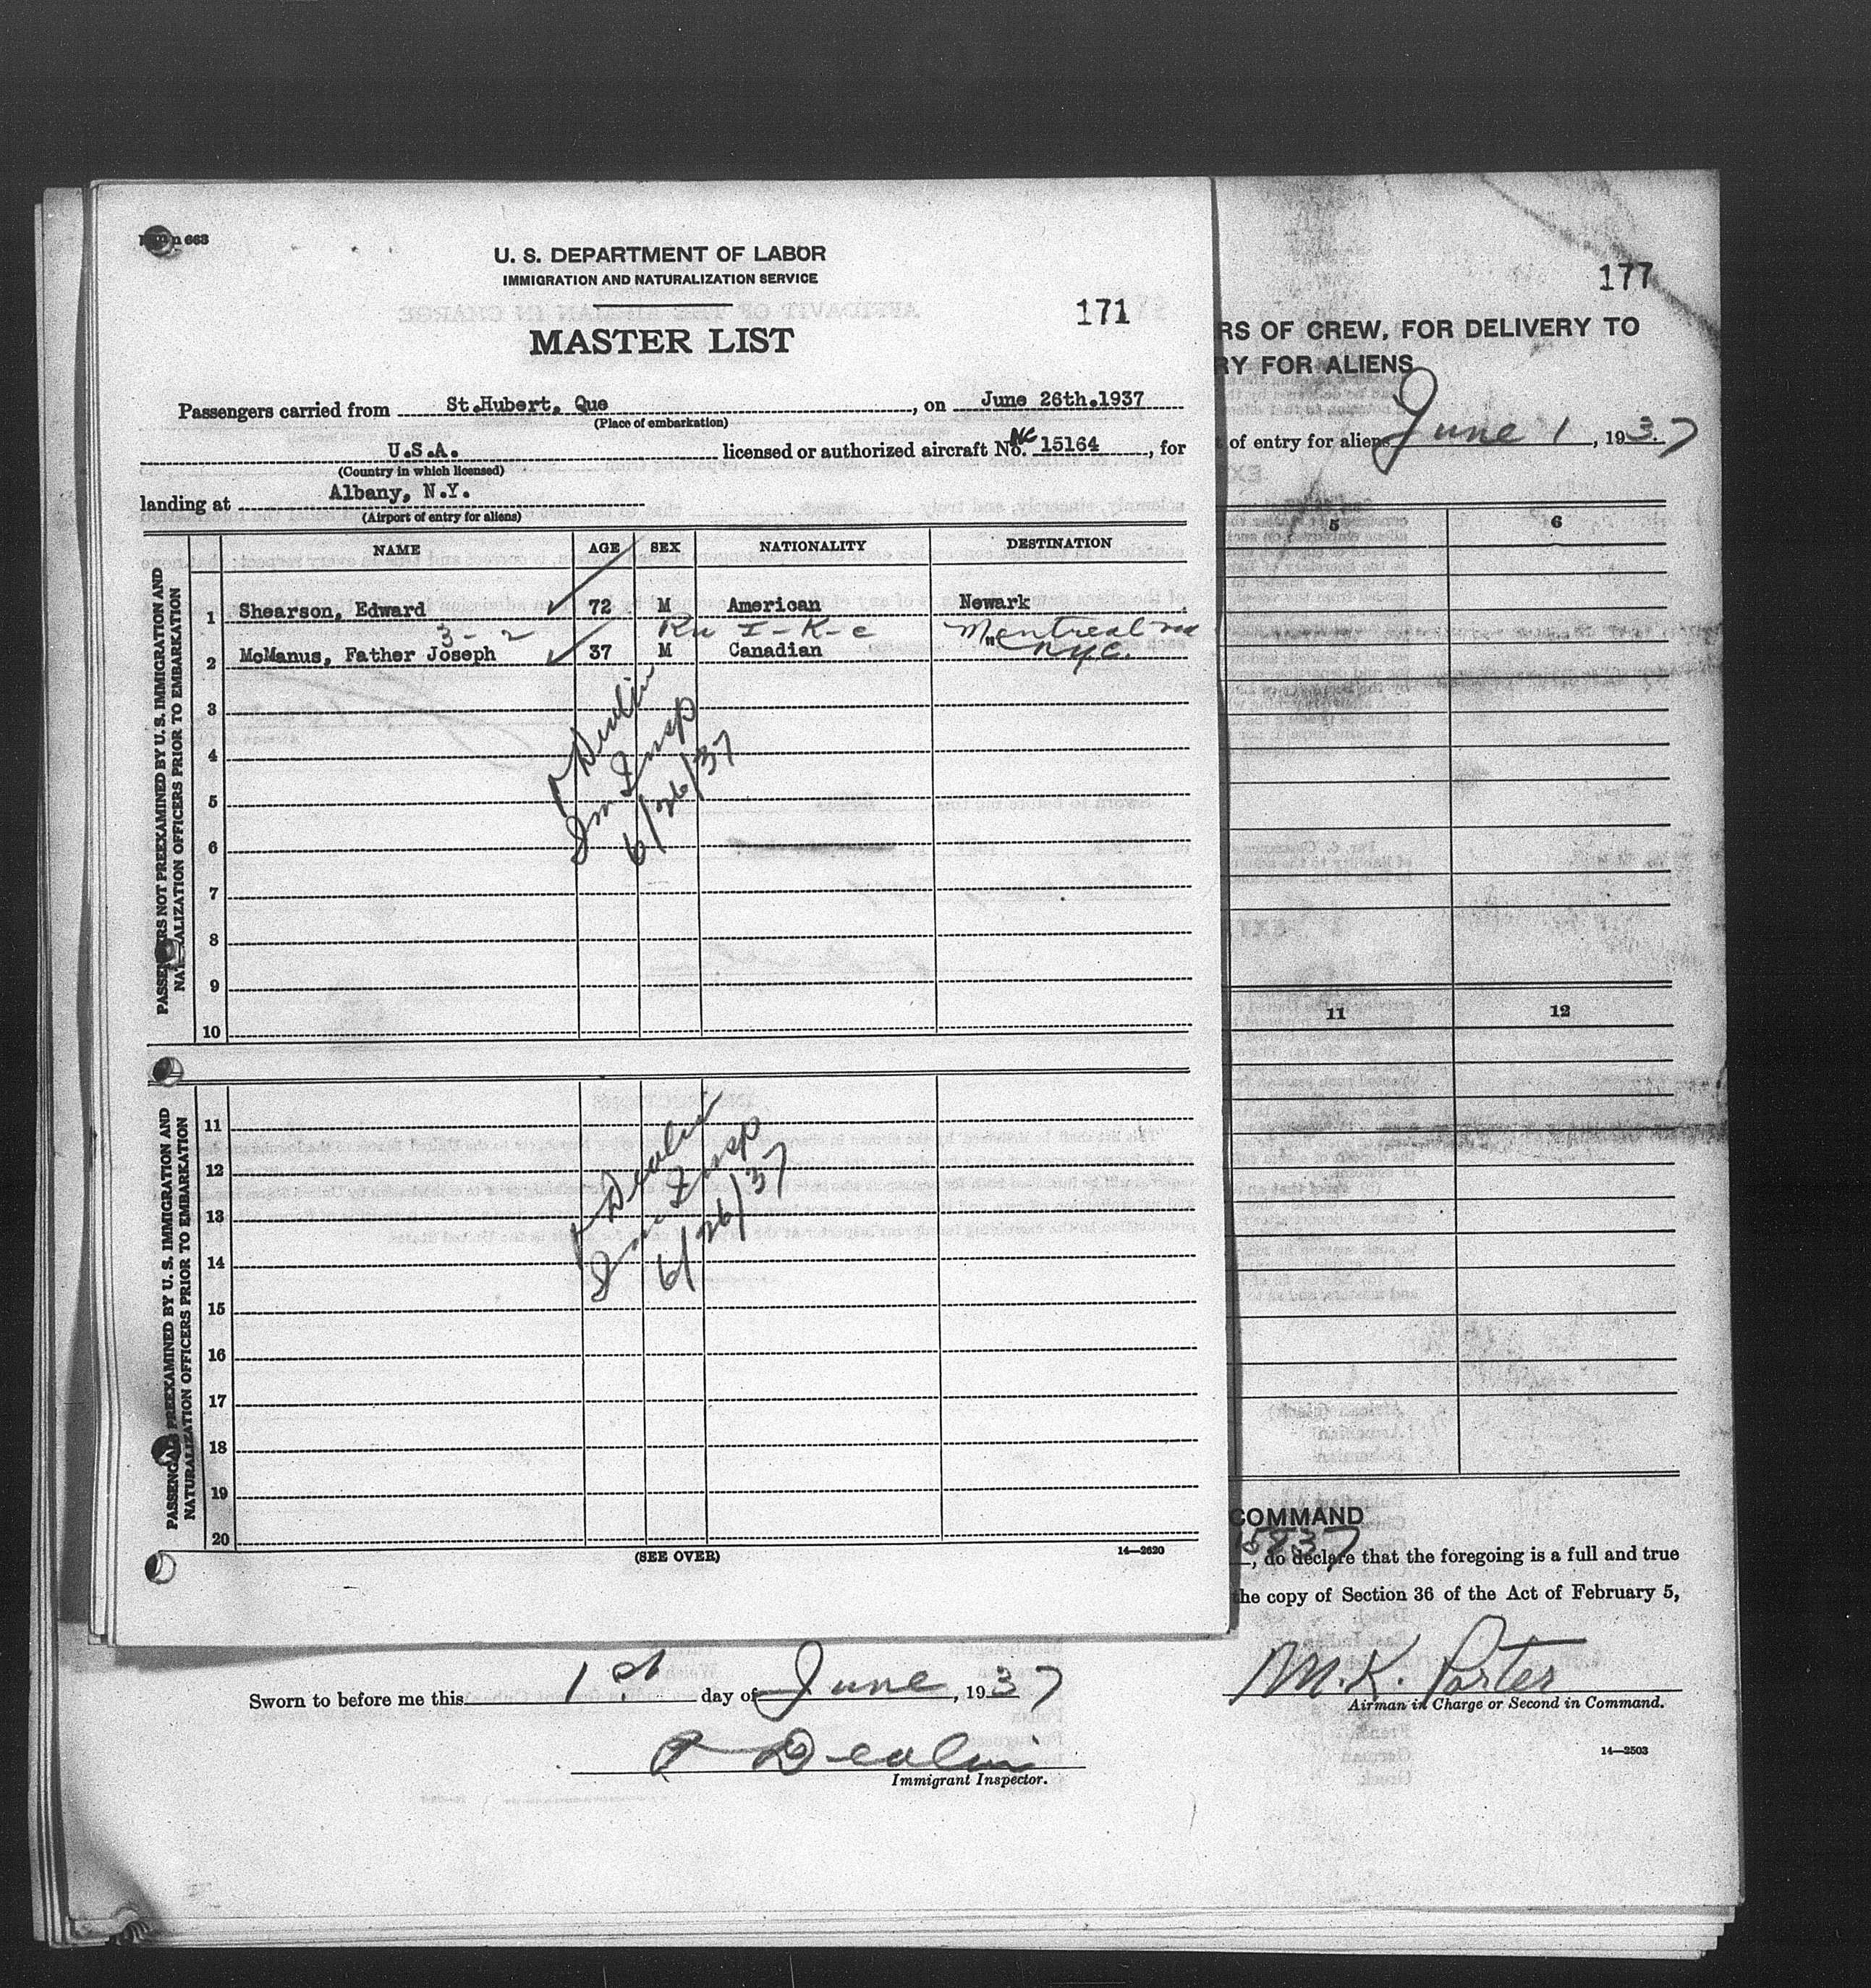 Form 663
U. S. DEPARTMENT OF LABOR
IMMIGRATION AND NATURALIZATION SERVICE
171
MASTER LIST
Passengers carried from St.Hubert, Que, on June 26th.1937
(Place of embarkation)
U.S.A. licensed or authorized aircraft No. NC 15164, for
(Country in which licensed)
landing at Albany, N.Y.
(Airport of entry for aliens)
NAME AGE SEX NATIONALITY DESTINATION
PASSENGERS NOT PREEXAMINED BY U.S. IMMIGRATION AND
NATURALIZATION OFFICERS PRIOR TO EMBARKATION
1 Shearson, Edward 72 M American Newark
3-2 I-K-C Montreal
2 McManus, Father Joseph 37 M Canadian " N.Y.C.
3
4
5
6
7
8
9
10
P Deulin
Im Insp
6/26/37
PASSENGERS PREEXAMINED BY U. S. IMMIGRATION AND
NATURALIZATION OFFICERS PRIOR TO EMBARKATION
11
12
13
14
15
16
17
18
19
20
P Deulin
Im Insp
6/26/37
(SEE OVER)
14—2620
177
RS OF CREW, FOR DELIVERY TO
RY FOR ALIENS
t of entry for aliens June 1, 1937
5 6
11 12
COMMAND
15837
, do declare that the foregoing is a full and true
the copy of Section 36 of the Act of February 5,
Sworn to before me this 1st day of June, 1937
M.K. Porter
Airman in Charge or Second in Command.
P Deulin
Immigrant Inspector.
14—2503